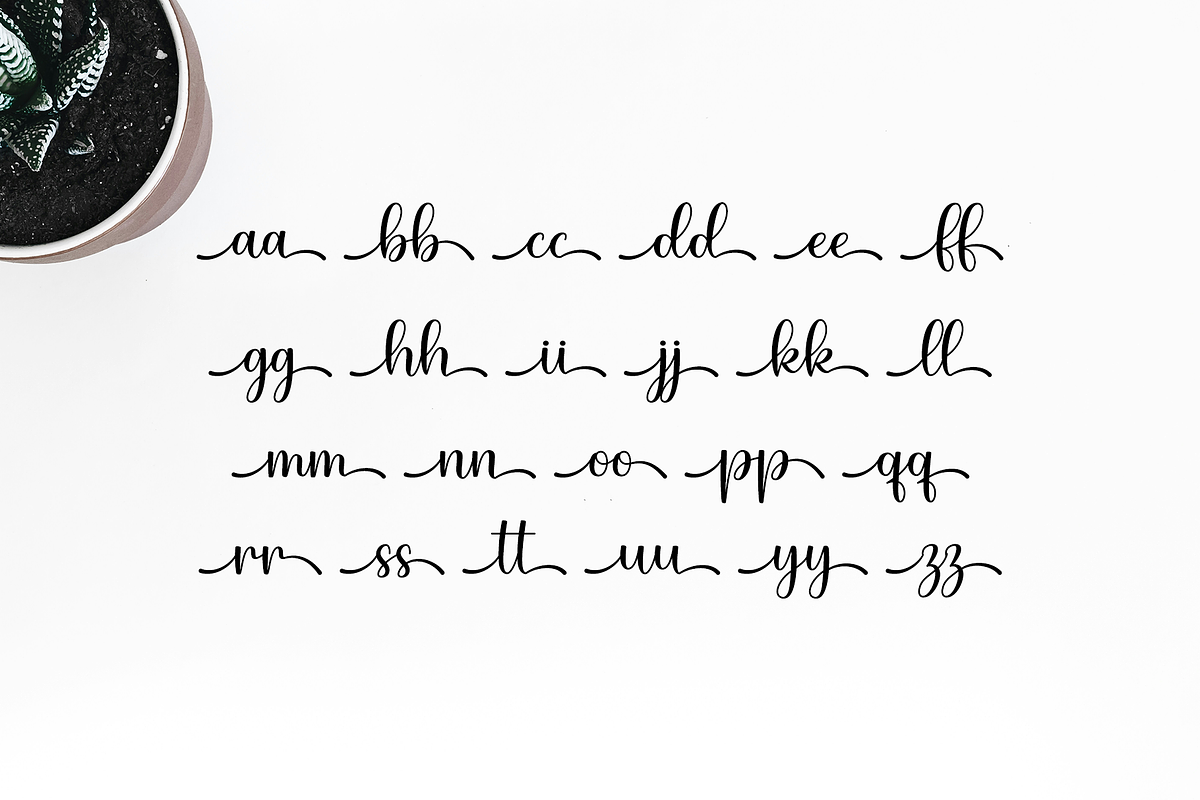 aa bb cc dd ee ff
gg hh ii jj kk ll
mm nn oo pp qq
rr ss tt uu yy zz